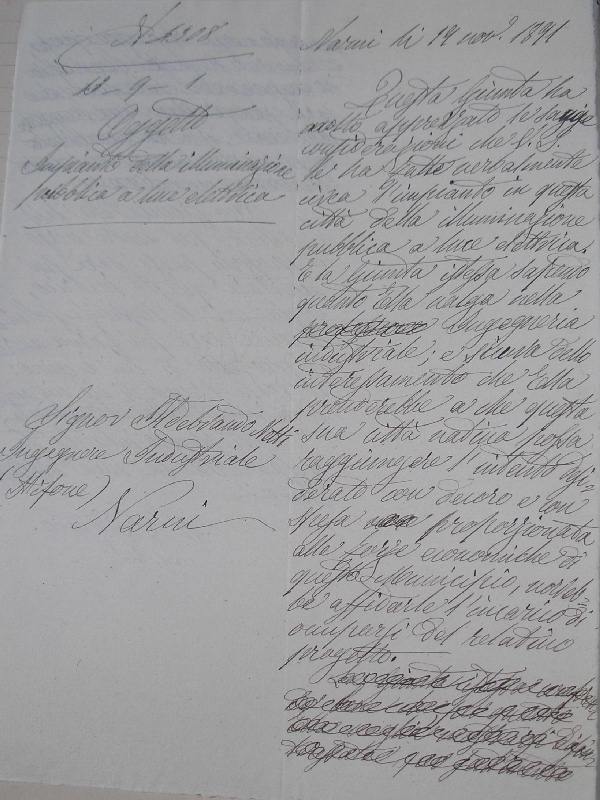 N 1308
13 - 9 - 1
Oggetto
Impianto della illuminazione
pubblica a luce elettrica
Signor Aldobrando Netti
Ingegnere Industriale
(Stifone)
Narni
Narni li 19 nov. 1891
Questa Giunta ha
molto apprezzato le sagge
considerazioni che S. S.
le ha fatte verbalmente
circa l'impianto in questa
città della illuminazione
pubblica a luce elettrica.
E la Giunta istessa sapendo
quanto Ella valga nella
Ingegneria
industriale, e sicura dello
interessamento che Ella
prenderebbe a che questa
sua città nativa possa
raggiungere l'intento desi-
derato con decoro e con
spesa proporzionata
alle forze economiche di
questo Municipio, vorreb-
be affidarle l'incarico di
occuparsi del relativo
progetto.